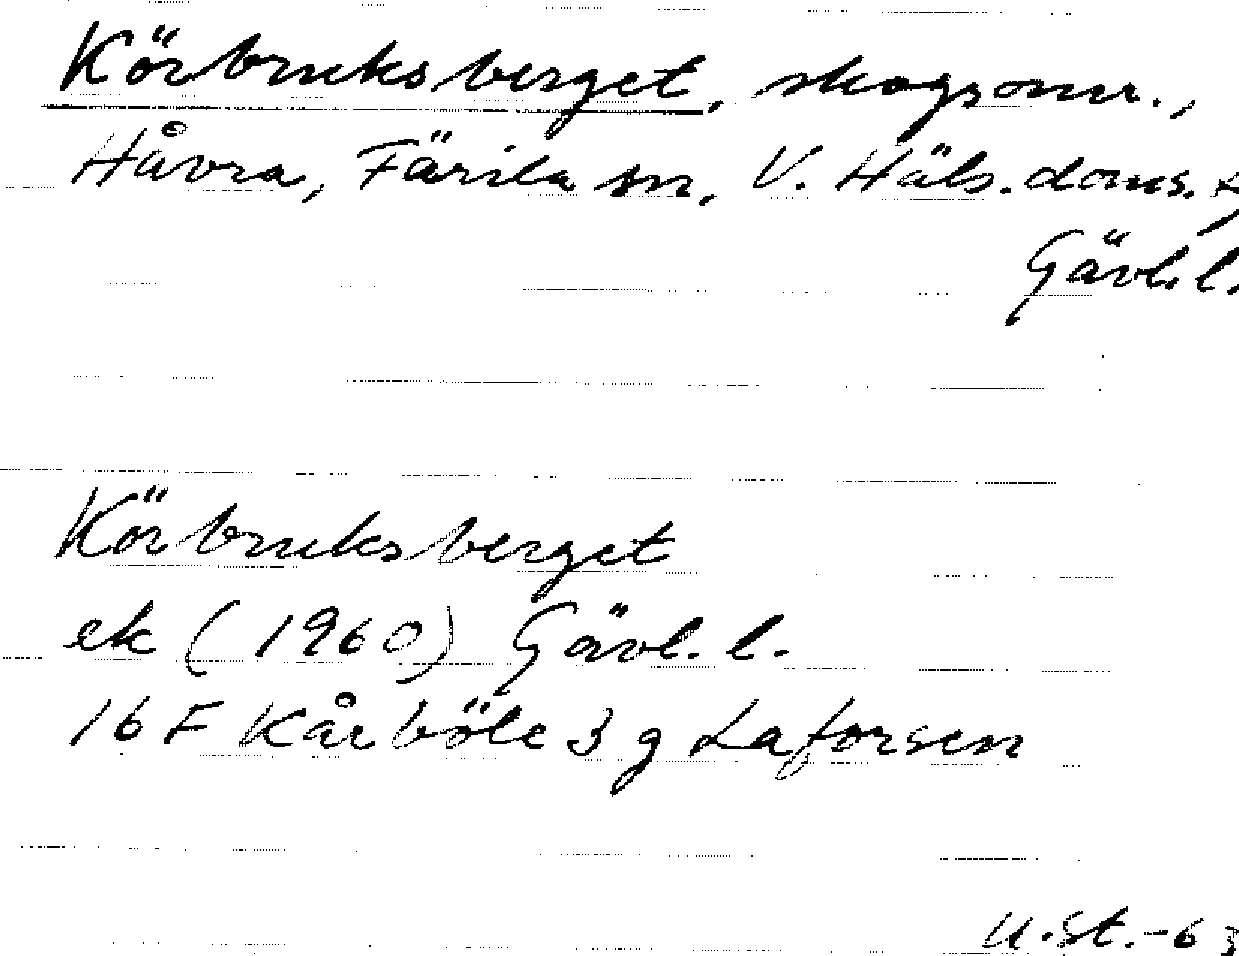 Körbruksberget, skogsomr.,
Håvra, Färila sn, V. Häls. doms.
Gävl. l.
Körbruksberget
ek (1960) Gävl. l.
16 F Kårböle 3 g Laforsen
U.St.-63